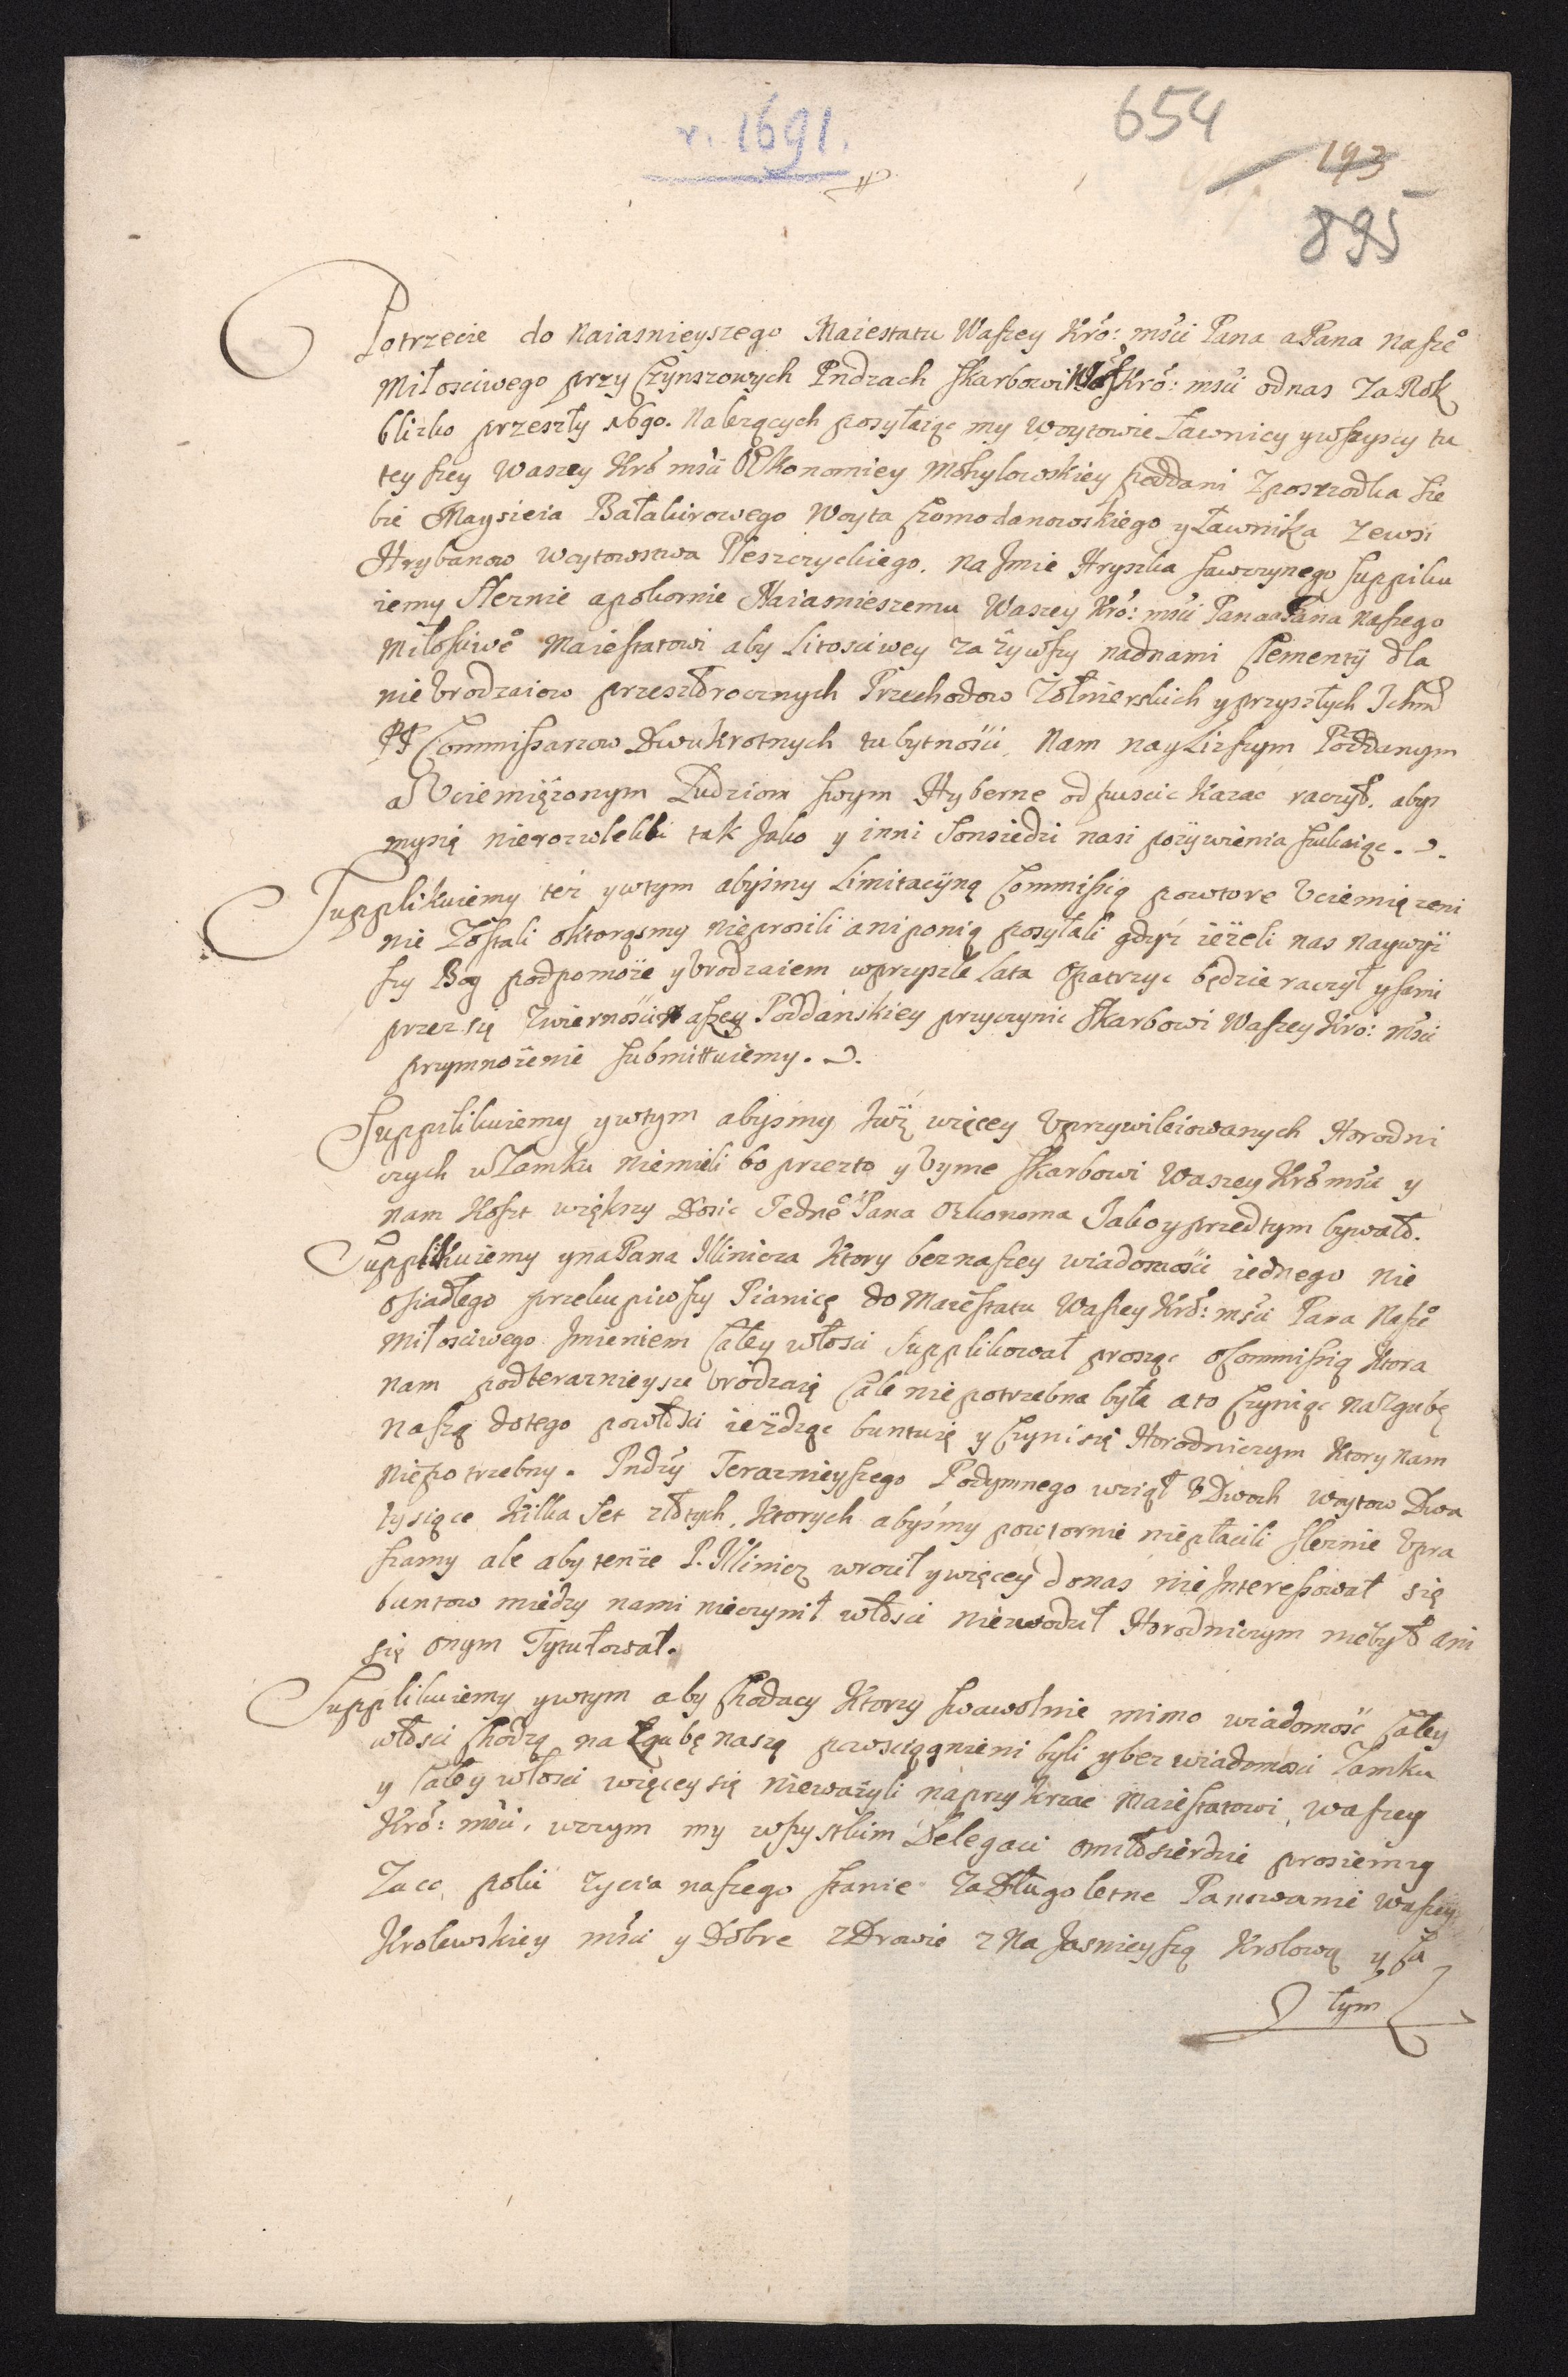 r. 1691.
654
193
895
Potrzecie do Naiasnieyszego Maiestatu Waszey Kró: mśći Pana a Pana Nasze°
Miłosciwego przy Czynszowych Pndzach skarbowi Wsz Kró: mśći odnas Za Rok
blizko przeszły 1690. Należących posyłaiąc my Woytowie Ławnicy ywszyscy tu
teyszey Waszey Kró mśći OEkonomiey Mohylowskiey Poddani Zposrzodka sie
bie Maysieia Bałakirowego Woyta Czomodanowskiego yŁawnika Zewsi
Hrybanow Woytowstwa Pleszczyckiego. Na Jmie Hryszka suppliku
iemy słeznie apokornie Naiasnieszemu Waszey Kró: mśći Pana a Pana Naszego
Miłosciwe° Maiestatowi aby Litosciwey zażywszy nadnami Clementÿ dla
nieVrodzaiow przeszłorocznych Przechodow Zołnierskich yprzyszłych Ichm
PP Commissarzow Dwukrotnych tubytnośći, Nam nayLizszym Poddanym
a Vciemięzonym Ludziom swym Hyberne odpuscic kazac raczył. abyz
mysię nierozwlekli tak Jako y inni Sonsiedzi nasi pożywienia szukaiąc.
Supplikuiemy też ywtym abysmy Limitacÿną Commissią powtore Vciemięzeni
nie Zostali oktorąsmy nieprosili aniponią posyłali gdyż ieżeli nas Naywyż
szy Bog podpomoże yVrodzaiem wprzyszłe Lata Opatrzyc będzie raczył ysami
przez się Zwiernośći Naszey Poddańskiey przyczynic Skarbowi Waszey Kro: Mśći
przymnożenie submittuiemy.
Supplikuiemy ywtym abysmy Już więcey Vprzywileiowanych Horodni
czych wZamku niemieli bo przezto yVyme skarbowi Waszey Kró mśći y
nam Koszt większy Dosic Jedne° Pana OEkonoma Jako yprzedtym bywało.
Supplikuiemy yna Pana Illinicza Ktory beznaszey wiadomośći iednego nie
osiadłego przekupiwszy Pianicę do Maiestatu Waszey Kró: mśći Pana Nasze°
Miłosciwego Jmieniem Całey włosci Supplikował prosząc oCommissią Ktora
nam podterazniejsze Vrodzaię Cale niepotrzebna była ato Czyniąc naZgubę
naszą dotego powłości ieżdząc buntuię y Czynisię Horodniczym Ktory nam
niepotrzebny. Pndzÿ Teraznieyszego Podymnego wziął VDwoch Woytow Dwa
tysiące Kilka Set złotych, Ktorych abyśmy powtornie niepłacili słeznie Vpra
szamy ale aby tenże P. Illinicz wrocił ywięcey donas nieInteressował się
buntow miedzy nami nieczynił włości niezwodził Horodniczym niebył ani
się onym Tytułował.
Supplikuiemy ywtym aby Chodacy Ktorzy swawolnie mimo wiadomość Całey
włosci Chodzą na Zgubę naszą powsciągnieni byli ybez wiadomosci Zamku
y Całey włosci więcey się nieważyli naprzykrzac Maiestatowi Waszey
Kró: mśći. wczym my wszystkim Delegaci omiłosierdzie prosiemy
Zaco, poki zycia naszego stanie ZaDługoletne Panowanie Waszey
Krolewskiey mśći y Dobre zDrowie zNaJasnieyszą Krolową y Ca
łym